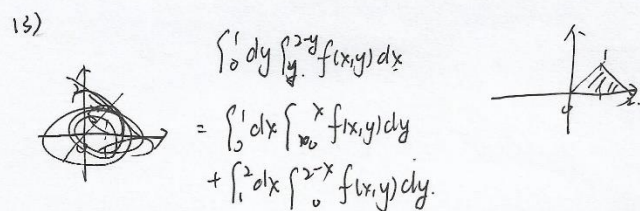 13)
∫₀¹ dy ∫_y^{2-y} f(x,y) dx
= ∫₀¹ dx ∫₀^x f(x,y) dy
+ ∫₁² dx ∫₀^{2-x} f(x,y) dy.